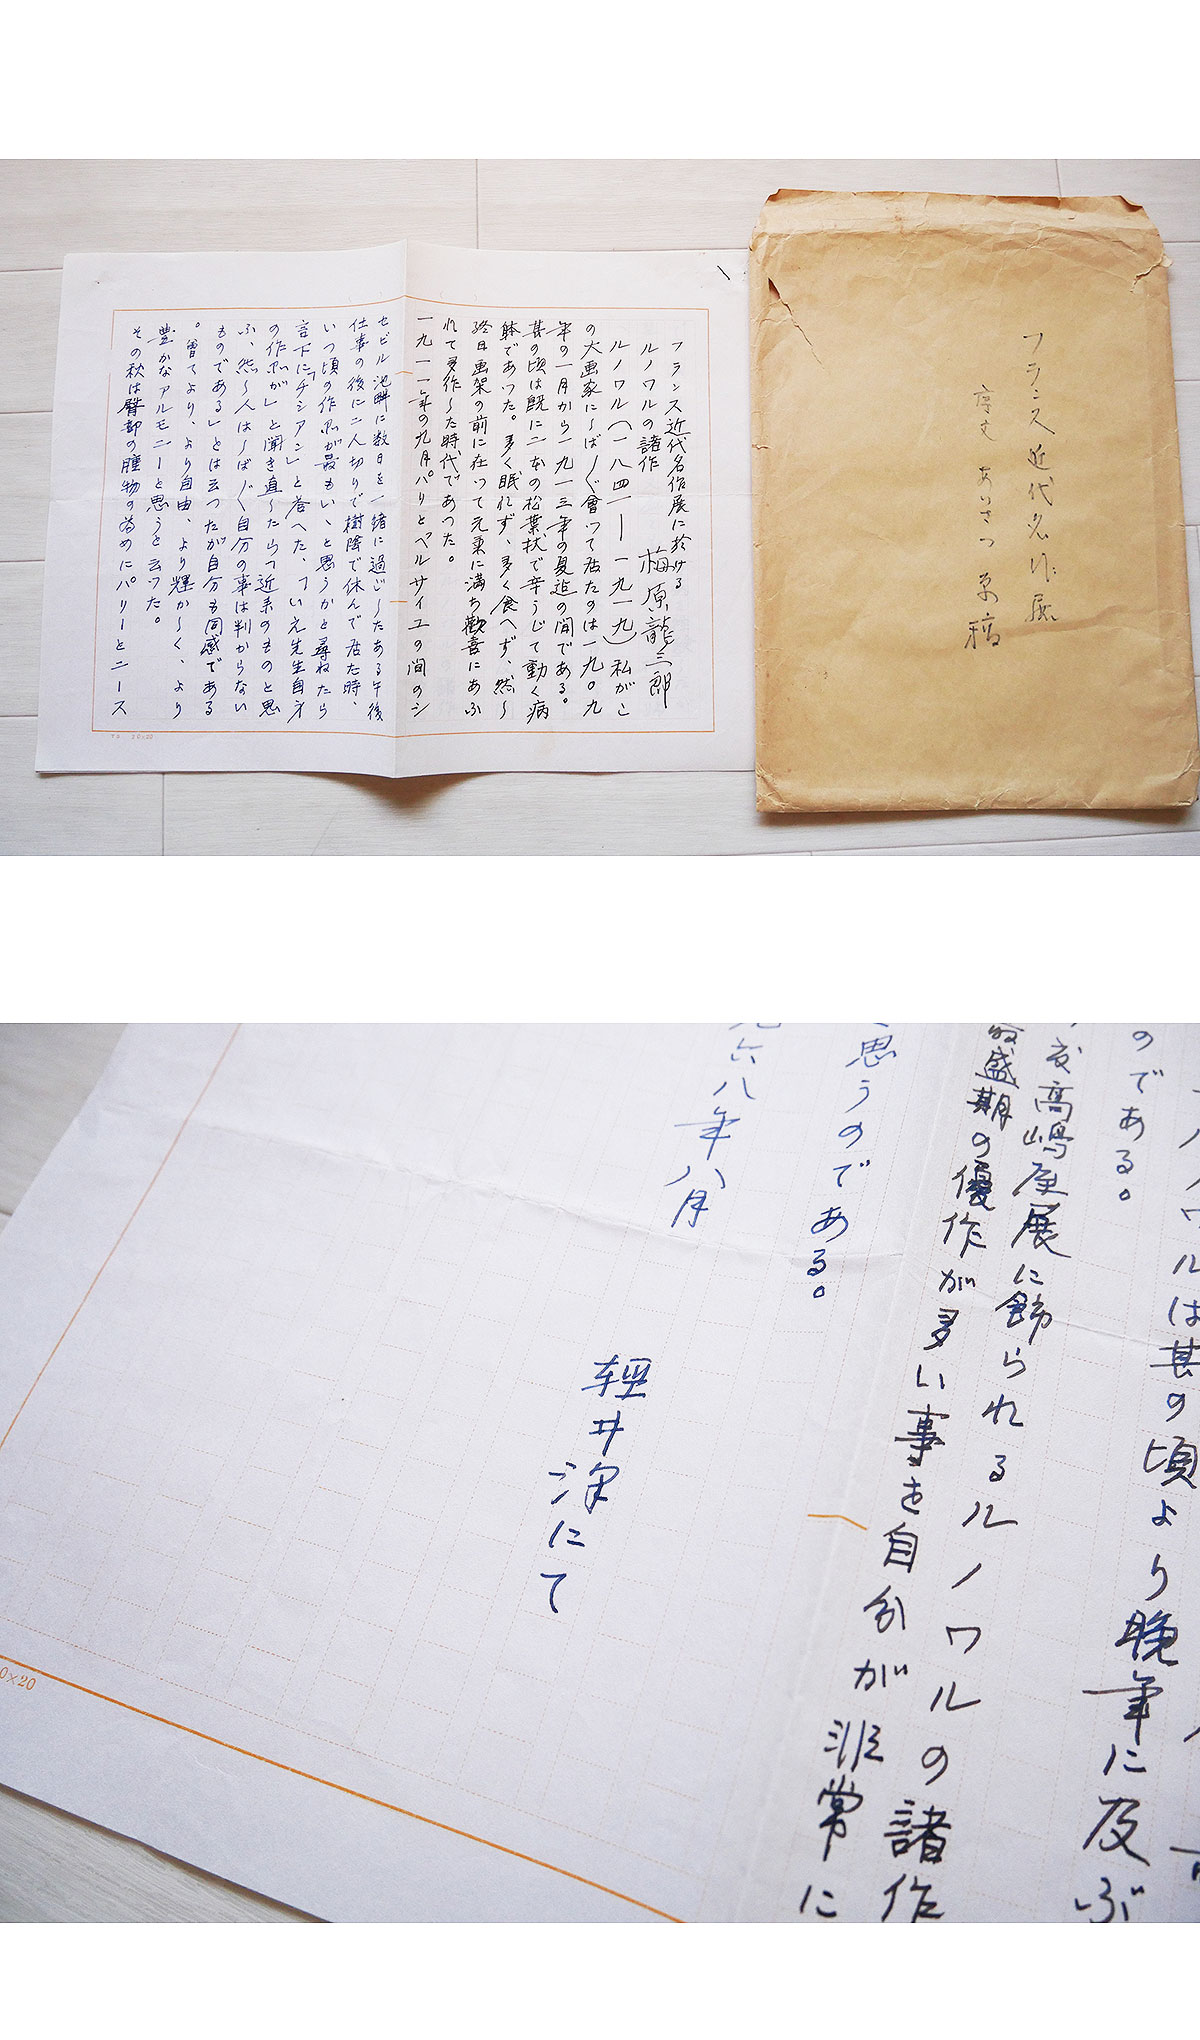 フランス近代名作展に於ける
ルノワルの諸作　梅原龍三郎
ルノワル（一八四一――一九一九）私がこ
の大画家にしばしば會つて居たのは一九〇九
年の一月から一九一三年の夏迄の間である。
其の頃は既に二本の松葉杖で辛うじて動く病
躰であつた。多く眠れず、多く食へず、然し
終日画架の前に在つて元気に満ち歓喜にあふ
れて多作した時代であつた。
一九一一年の九月パリとベルサイユの間のシ
セビル池畔に数日を一緒に過じしたある午後
仕事の後に二人切りで樹陰で休んで居た時、
いつ頃の作品が最もいゝと思うかと尋ねたら
言下に「チシアン」と答へた、「いえ先生自身
の作品が」と聞き直したら「近来のものと思
ふ、然し人はしばしば自分の事は判からない
ものである」とは云つたが自分も同感である
。曽てより、より自由、より輝かしく、より
豊かなアルモニーと思うと云つた。
その秋は臀部の腫物の為めにパリーとニース
20×20
フランス近代名作展
序文 あいさつ 草稿
ノワルは其の頃より晩年に及ぶ
のである。
高嶋屋展に飾られるルノワルの諸作
最盛期の優作が多い事を自分が非常に
思うのである。
九六八年八月
輕井沢にて
0×20